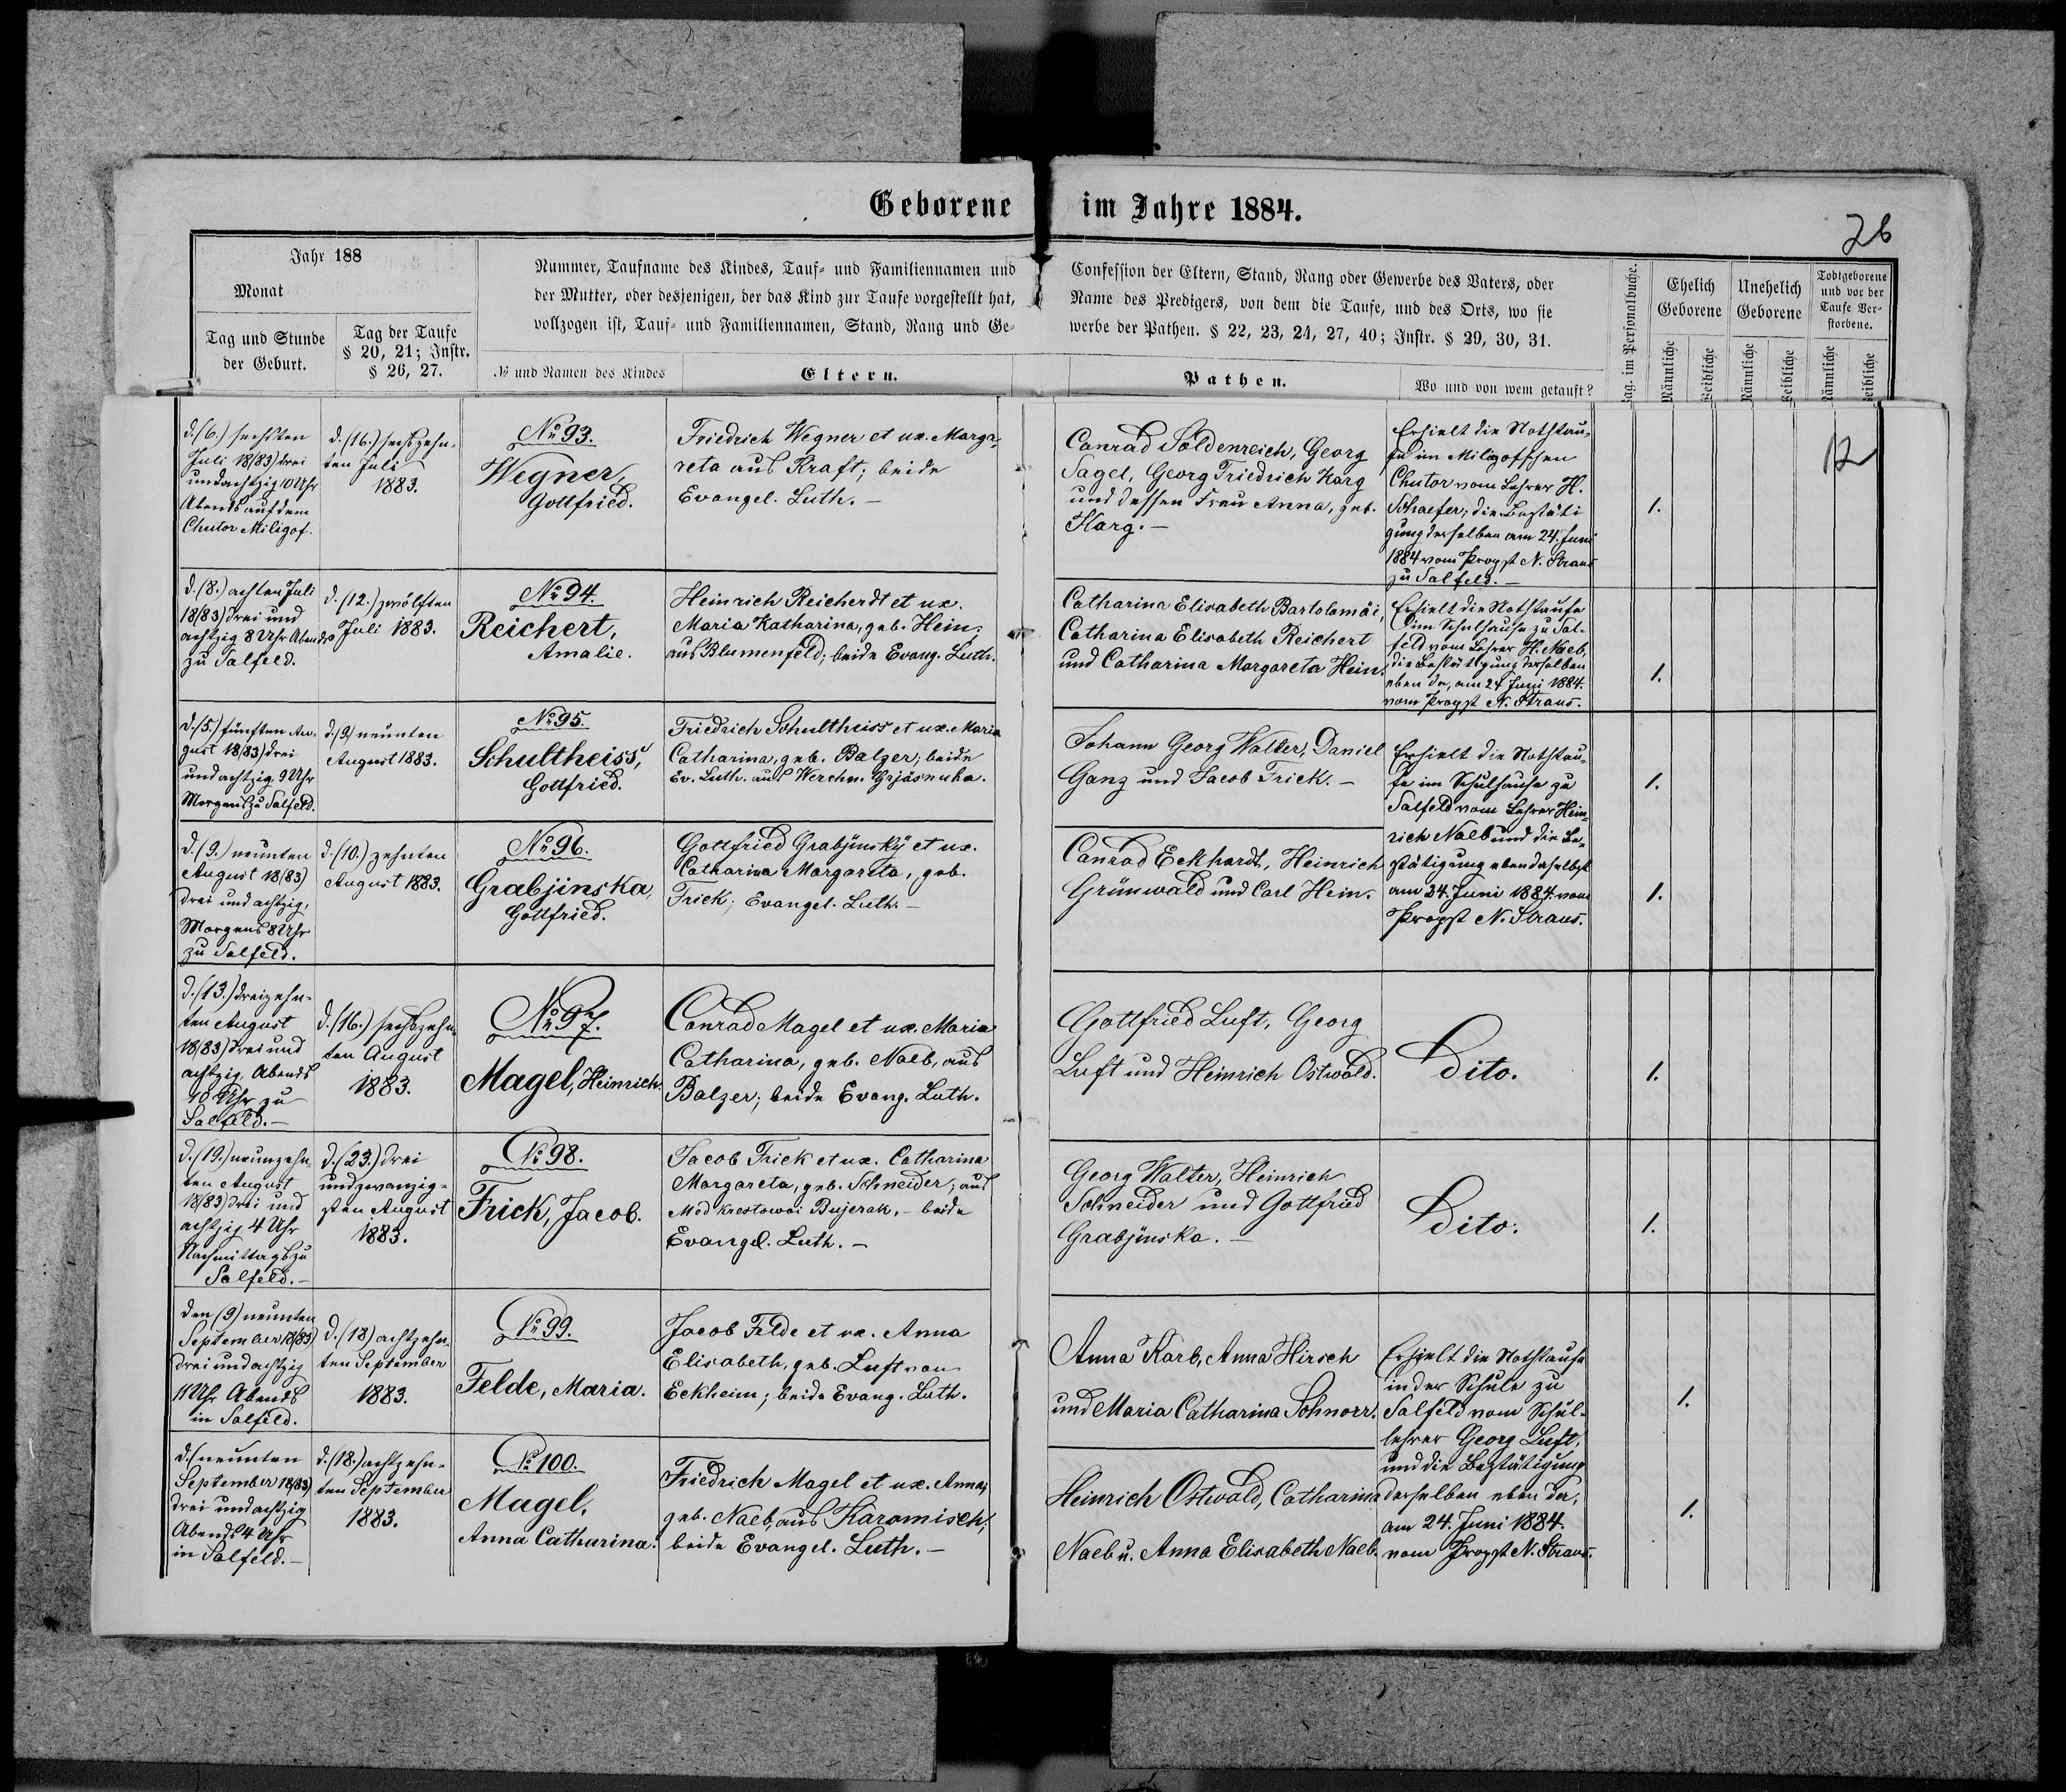 Geborene im Jahre 1884.
26
Jahr 188
Monat
Tag und Stunde
der Geburt.
Tag der Taufe
§ 20, 21; Instr.
§ 26, 27.
Nummer, Taufname des Kindes, Tauf- und Familiennamen und
der Mutter, oder desjenigen, der das Kind zur Taufe vorgestellt hat,
vollzogen ist, Tauf- und Familiennamen, Stand, Rang und Ge-
№ und Namen des Kindes
Eltern.
Confession der Eltern, Stand, Rang oder Gewerbe des Vaters, oder
Name des Predigers, von dem die Taufe, und des Orts, wo sie
werbe der Pathen. § 22, 23, 24, 27, 40; Instr. § 29, 30, 31.
Pathen.
Wo und von wem getauft?
Pag. im Personalbuche.
Ehelich
Geborene
Unehelich
Geborene
Todtgeborene
und vor der
Taufe Ver-
storbene.
Männliche
Weibliche
Männliche
Weibliche
Männliche
Weibliche
d. (6.) sechsten
Juli 18(83) drei
undachtzig 10 Uhr
Abends auf dem
Chutor Miligof.
d. (16.) sechszehn-
ten Juli
1883.
№ 93.
Wegner,
Gottfried.
Friedrich Wegner et ux. Marga-
reta aus Kraft; beide
Evangel. Luth. —
Conrad Soldenreich, Georg
Sagel, Georg Friedrich Karg
und dessen Frau Anna, geb.
Karg. —
Erhielt die Nothtau-
fe im Miligofschen
Chutor vom Lehrer H.
Schaefer; die Bestäti
gung derselben am 24. Juni
1884 vom Propst N. Straus
zu Salfeld. —
1.
12
d. (8.) achten Juli
18(83) drei und
achtzig 8 Uhr Abends
zu Salfeld.
d. (12.) zwölften
Juli 1883.
№ 94.
Reichert,
Amalie.
Heinrich Reicherdt et ux.
Maria Katharina, geb. Hein,
aus Blumenfeld; beide Evang. Luth.
Catharina Elisabeth Bartolomäi,
Catharina Elisabeth Reichert
und Catharina Margareta Hein.
Erhielt die Nothtaufe
im Schulhause zu Sal-
feld vom Lehrer H. Naeb,
die Bestätigung derselben
eben da, am 24 Juni 1884.
vom Propst N. Straus.
1.
d. (5.) fünften Au-
gust 18(83) drei
undachtzig 9 Uhr
Morgens zu Salfeld.
d. (9.) neunten
August 1883.
№ 95.
Schultheiss,
Gottfried.
Friedrich Schultheiss et ux. Maria
Catharina, geb. Balzer; beide
Ev. Luth. aus Werchn. Grjäsnuha.
Johann Georg Walter, Daniel
Ganz und Jacob Frick. —
Erhielt die Nothtau-
fe im Schulhause zu
Salfeld vom Lehrer Hein-
rich Naeb und die Be-
stätigung ebendaselbst
am 24. Juni 1884. vom
Propst N. Straus.
1.
d. (9.) neunten
August 18(83)
drei und achtzig,
Morgens 8 Uhr
zu Salfeld.
d. (10.) zehnten
August 1883.
№ 96.
Grabjinska,
Gottfried.
Gottfried Grabjinskij et ux.
Catharina Margareta, geb.
Frick; Evangel. Luth. —
Conrad Eckhardt, Heinrich
Grünwald und Carl Hein.
1.
d. (13.) dreizehn-
ten August
18(83) drei und
achtzig, Abends
10 Uhr zu
Salfeld. —
d. (16.) sechszehn-
ten August
1883.
№ 97.
Magel, Heinrich.
Conrad Magel et ux. Maria
Catharina, geb. Naeb, aus
Balzer; beide Evang. Luth.
Gottfried Luft, Georg
Luft und Heinrich Ostwald.
Dito.
1.
d. (19.) neunzehn-
ten August
18(83) drei und
achtzig 4 Uhr
Nachmittags zu
Salfeld. —
d. (23.) drei
undzwanzig-
sten August
1883.
№ 98.
Frick, Jacob.
Jacob Frick et ux. Catharina
Margareta, geb. Schneider, aus
Medkrestowoi Bujerak, - beide
Evangel. Luth. —
Georg Walter, Heinrich
Schneider und Gottfried
Grabjinska. —
Dito.
1.
den (9) neunten
September 18(83)
drei und achtzig
11 Uhr Abends
in Salfeld.
d. (18) achtzehn-
ten September
1883.
№ 99.
Felde, Maria.
Jacob Felde et ux. Anna
Elisabeth, geb. Luft von
Eckheim; beide Evang. Luth.
Anna Karb, Anna Hirsch
und Maria Catharina Schnorr.
Erhielt die Nothtaufe
in der Schule zu
Salfeld vom Schul-
lehrer Georg Luft,
und die Bestätigung
derselben eben da,
am 24. Juni 1884.
vom Propst N. Straus.
1.
d. (neunten
September 18(83)
drei undachtzig
Abends 4 Uhr
in Salfeld. —
d. (18.) achtzehn-
ten September
1883.
№ 100.
Magel,
Anna Catharina.
Friedrich Magel et ux. Anna,
geb. Naeb, aus Haramisch;
beide Evangel. Luth. —
Heinrich Ostwald, Catharina
Naeb u. Anna Elisabeth Naeb.
1.